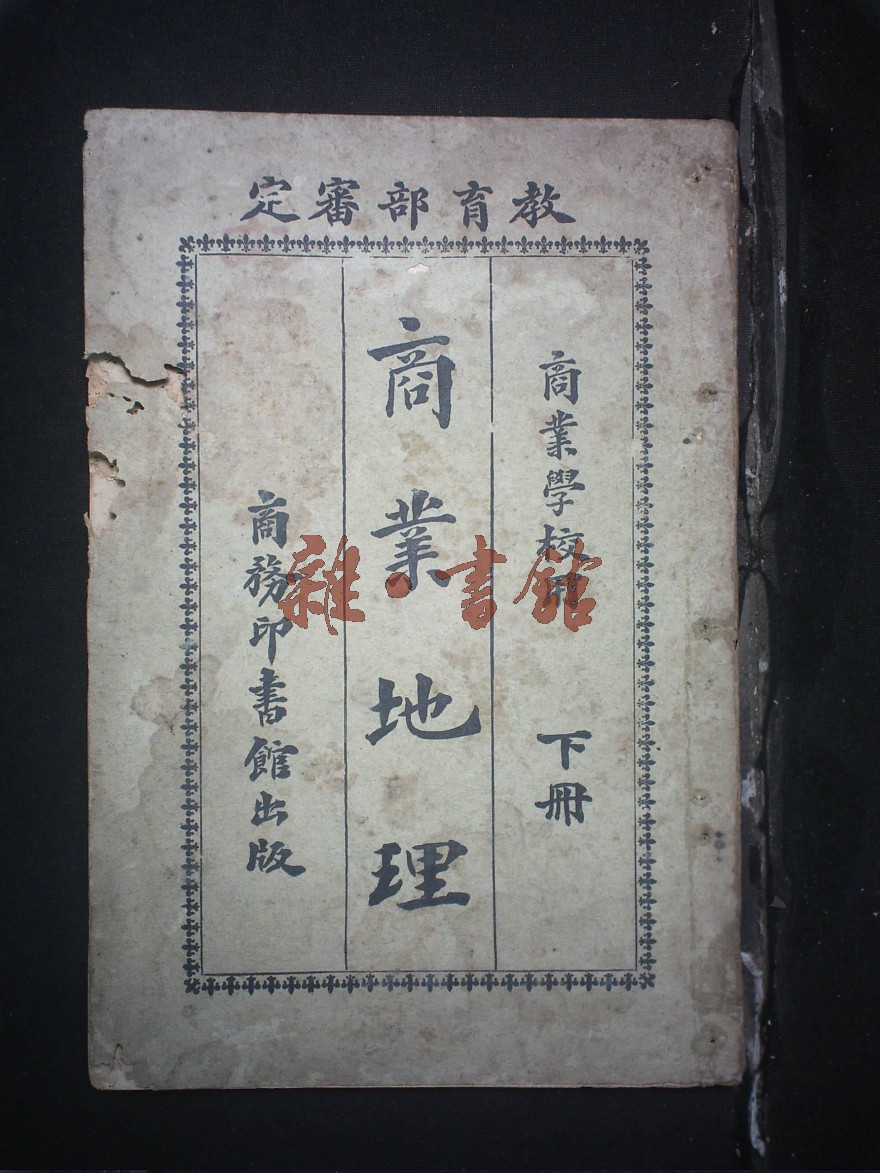 教育部審定
商業學校用 下冊
商業地理
商務印書館出版
雜·書館